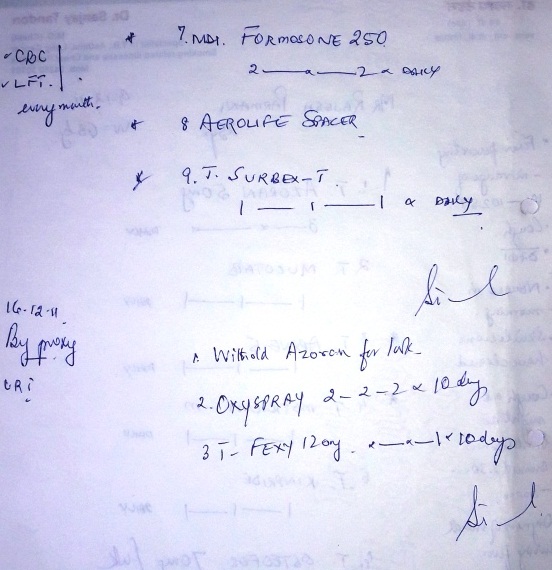 7. MDI. FORMOSONE 250
2 — x — 2 x DAILY
✓ CBC
✓ LFT.
every month.
8 AEROLIFE SPACER
9. T. SURBEX-T
1 — 1 — 1 x DAILY
16.12.11
By proxy
URI
1. Withhold Azoran for 1wk
2. OXYSPRAY 2-2-2 x 10 days
3 T- FEXY 120mg. x — x — 1 x 10 days